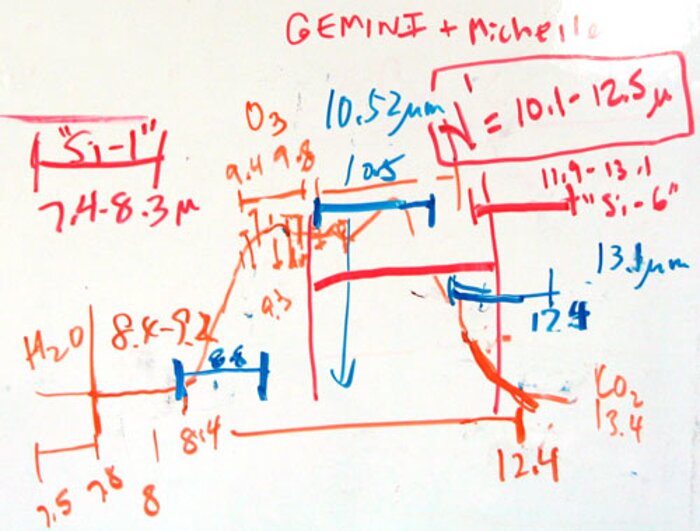 GEMINI + Michelle
N' = 10.1-12.5μ
"Si-1"
7.4-8.3μ
O3
10.52μm
9.4 9.8
10.5
11.9-13.1
"Si-6"
9.3
13.1μm
12.4
H2O
8.4-9.2
8.8
CO2
13.4
8.4
12.4
7.5 7.8
8